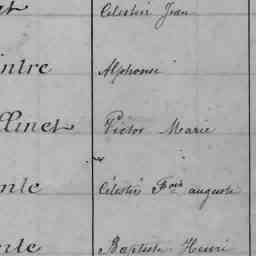 et Célestin Jean
intre Alphonse
Victor Marie
nte Célestin Fois auguste
nte Baptiste Henri